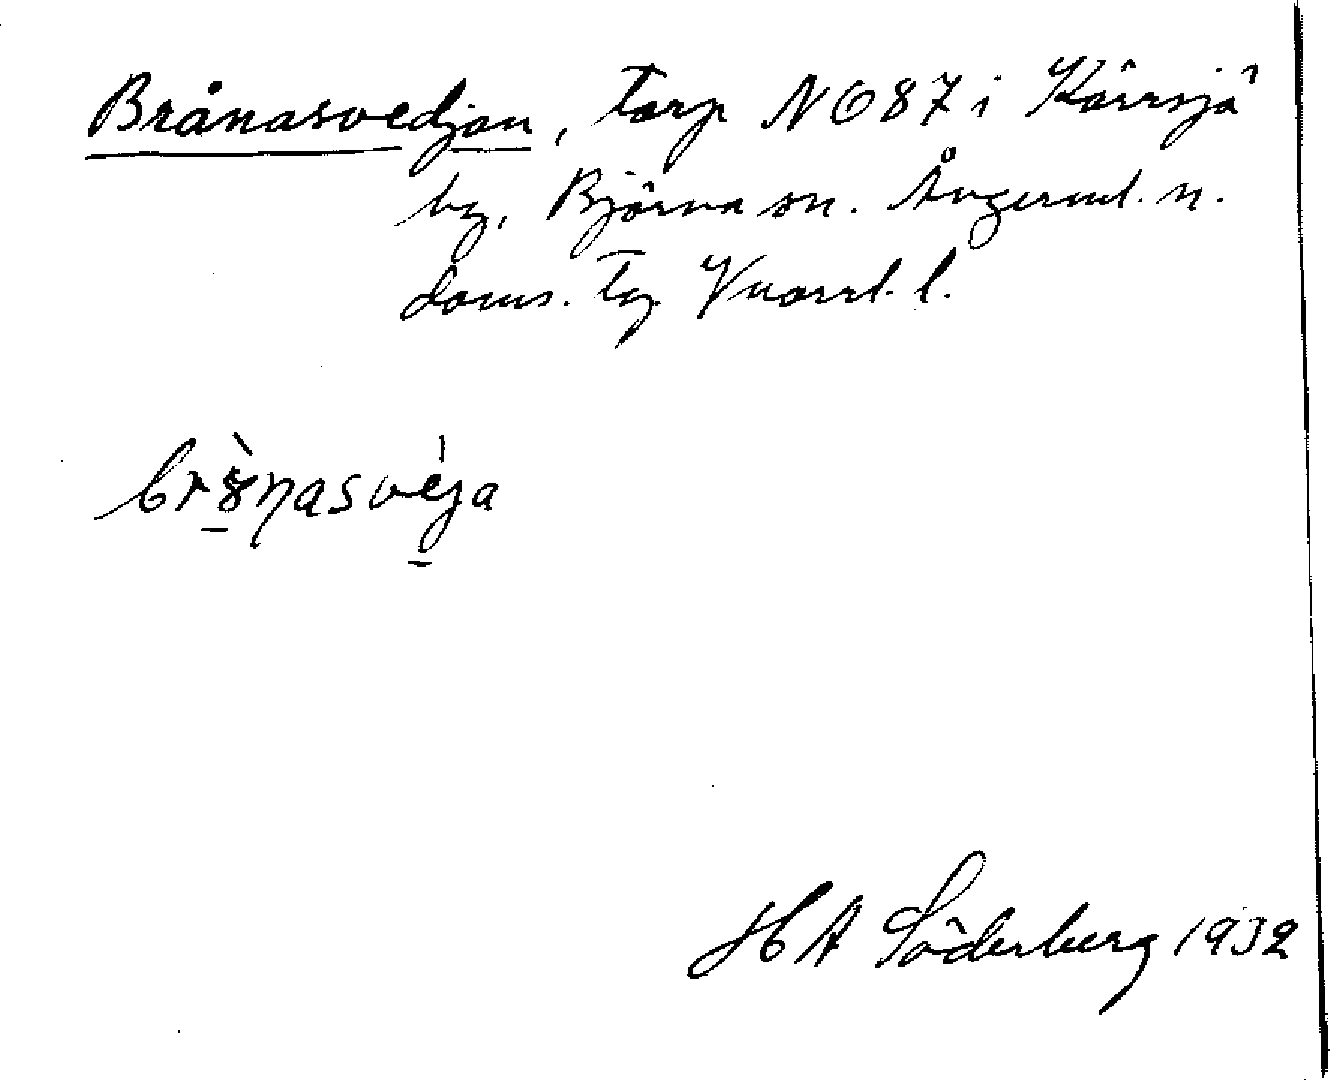 Brånasvedjan, torp NO 87 i Kärrsjö
by, Björna sn. Ångerml. n.
doms. tg Vnorrl. l.
H A Söderberg 1932